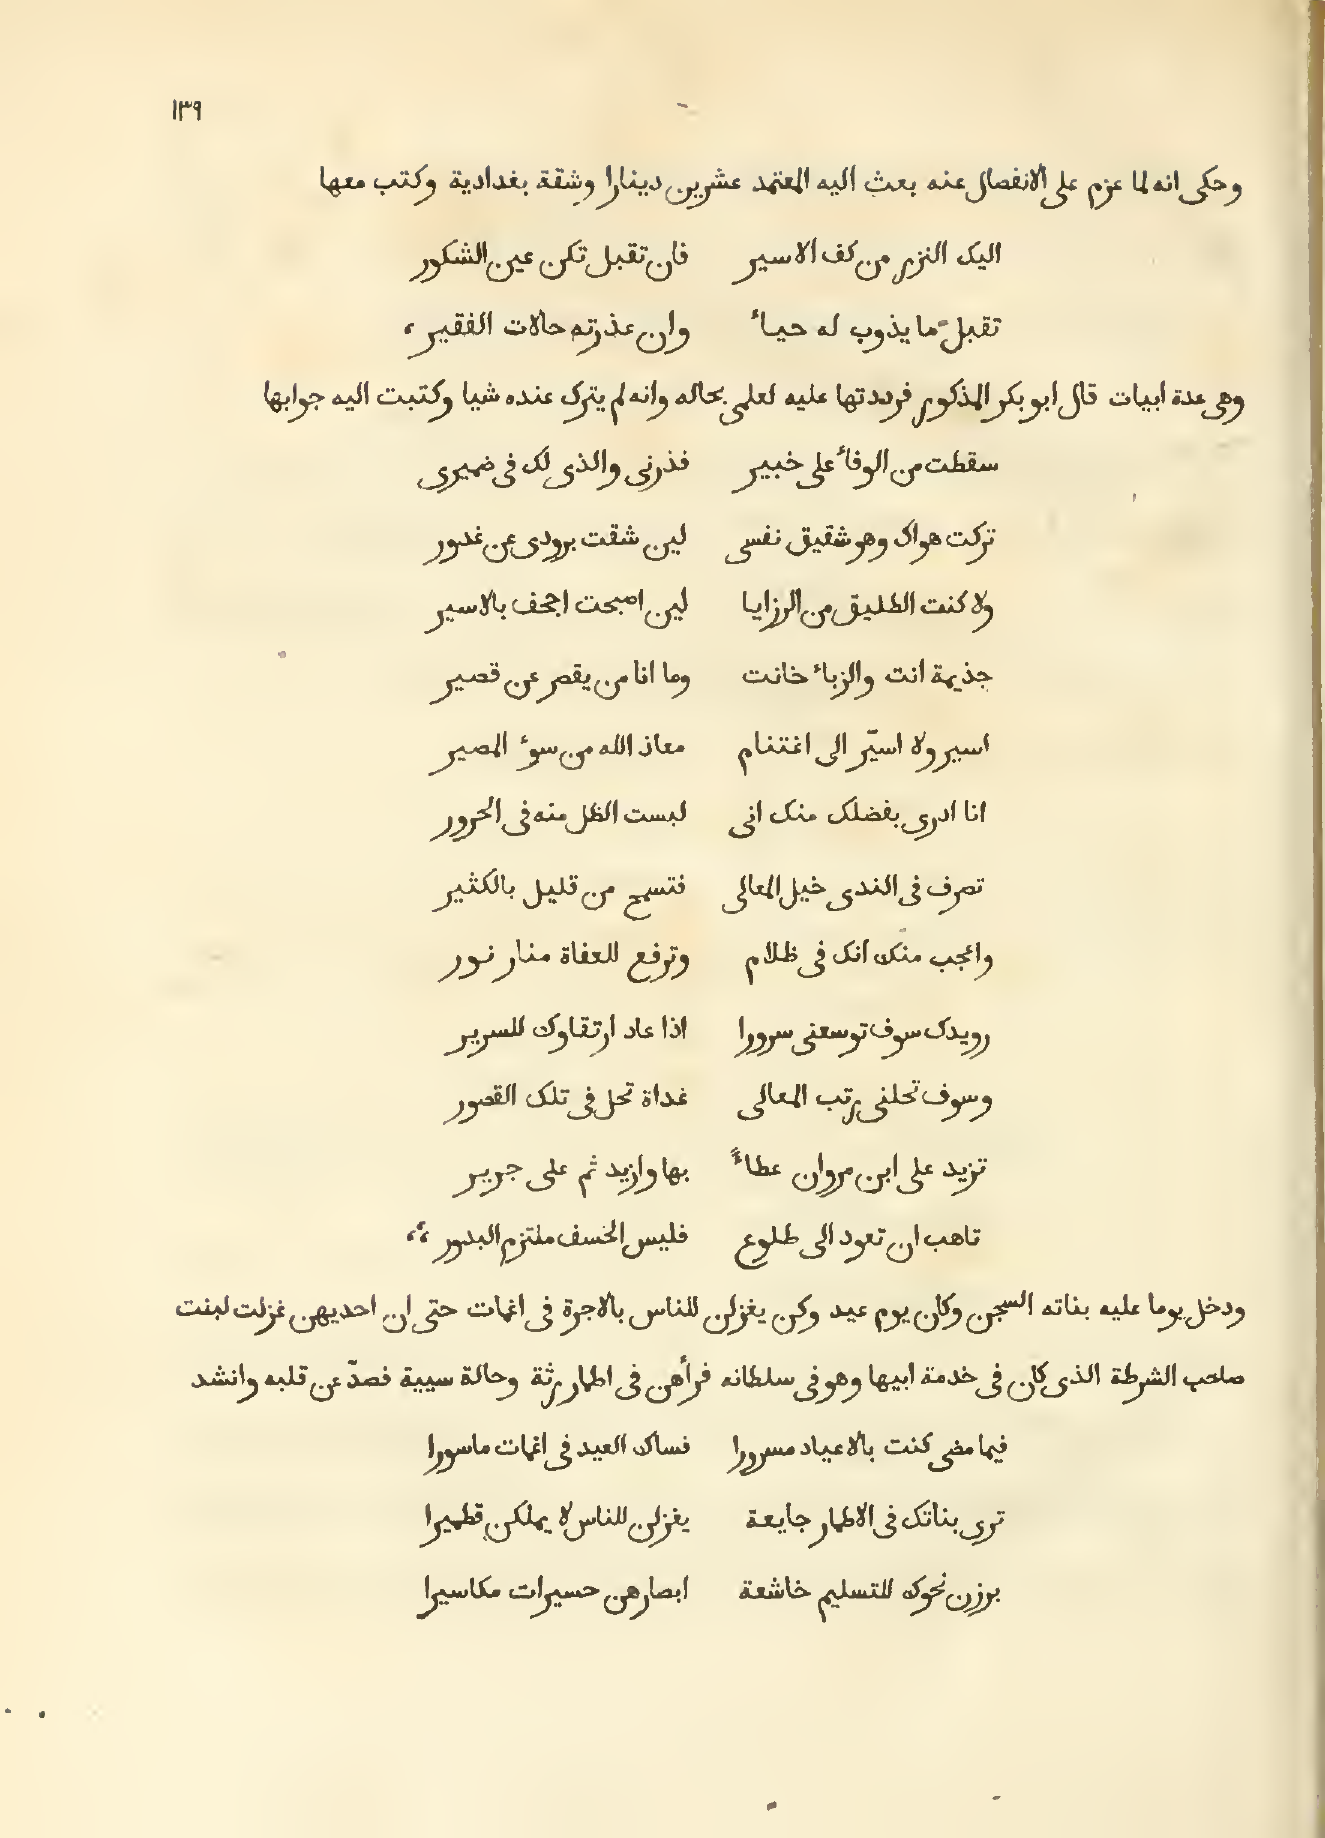 ١٣٩
وحكى انه لما عزم على الانفصال عنه بعث اليه المعتمد عشرين دينارا وشقة بغدادية وكتب معها
اليك النزر من كف الاسير فان تقبل تكن عين الشكور
تقبل ما يذوب له حياء وان عذرته حالات الفقير
وهى عدة ابيات قال ابو بكر المذكور فرددتها عليه لعلمى بحاله وانه لم يترك عنده شيا وكتبت اليه جوابها
سقطت من الوفاء على خبير فذرنى والذى لك فى ضميرى
تركت هواك وهو شقيق نفسى لين شقت برودى عن غدور
ولا كنت الطليق من الرزايا لين اصبحت اجحف بالاسير
جذيمة انت والزباء خانت وما انا من يقصر عن قصير
اسير ولا اسيّر الى اغتنام معاذ الله من سوء المصير
انا ادرى بفضلك منك انى لبست الظل منه فى الحرور
تصرف فى الندى خيل المعالى فتسمح من قليل بالكثير
واعجب منك انك فى ظلام وترفع للعفاة منار نور
رويدك سوف توسعنى سرورا اذا عاد ارتقاوك للسرير
وسوف تحلنى رتب المعالى غداة تحل فى تلك القصور
تزيد على ابن مروان عطاءً بها وازيد ثم على جرير
تاهب ان تعود الى طلوع فليس الخسف ملتزم البدور
ودخل يوما عليه بناته السجن وكان يوم عيد وكن يغزلن للناس بالاجرة فى اغمات حتى ان احديهن غزلت لبنت
صاحب الشرطة الذى كان فى خدمة ابيها وهو فى سلطانه فرأهن فى اطمار رثة وحالة سيية فصدّ عن قلبه وانشد
فيما مضى كنت بالاعياد مسرورا فساك العيد فى اغمات ماسورا
ترى بناتك فى الاطمار جايعة يغزلن للناس لا يملكن قطميرا
برزن نحوك للتسليم خاشعة ابصارهن حسيرات مكاسيرا